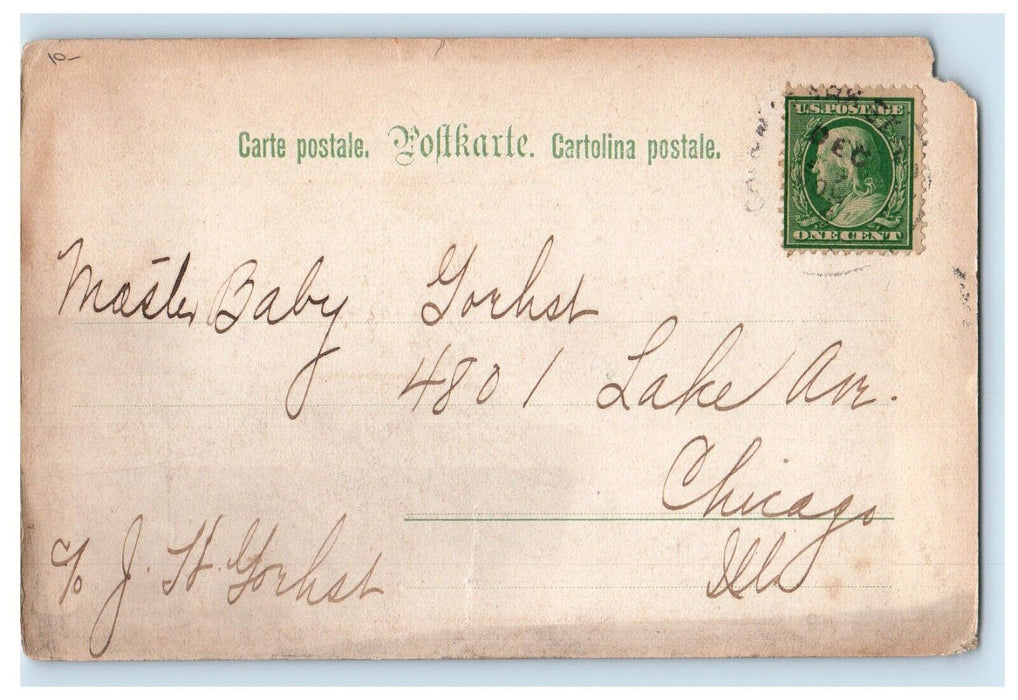 10-
Carte postale. Postkarte. Cartolina postale.
U.S. POSTAGE
DEC
ONE CENT
Master Baby Gorhst
4801 Lake Ave.
Chicago
Ills
c/o J. H. Gorhst